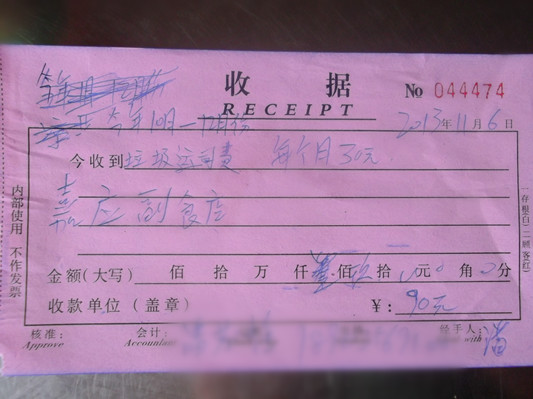 收 据
№ 044474
RECEIPT
今年10月一12月份
2013年11月6日
今收到垃圾运费 每个月30元.
嘉应副食店
金额(大写) 佰 拾 万 仟 佰玖拾 元 角 分
收款单位(盖章) ¥: 90元
核准: 会计: 经手人:
Approve Accountant with
内部使用 不作发票
一存根(白)二顾客(红)